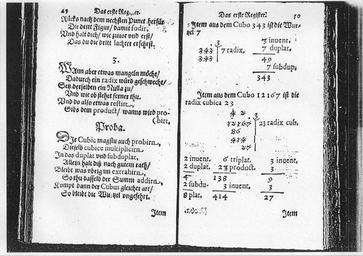 49 Das erste Regist.
Rücks nach dem nechsten Punct herfür
Die dritt Figur / damit fodir.
Und halt dich / wie zuuor wird erst /
Das du die dritt sachten erfehrst.
3.
Wenn aber etwas mangeln möchte /
Dadurch ein radix würd geschwecht /
Setz derselben ein Nulla zu /
Und wie ob stehet ferner thu.
Und do also etwas restirt,
Gibs dem product / wanns wird pro-
birt.
Proba.
Die Cubic magstu auch probirn.
Dieselb cubice multiplicirn.
In das duplat und subduplat,
Allein halt dich nach gutem rath /
Bleibt was übrig im extrahirn,
So thu dasselb der Summ addirn,
Kompt dann der Cubus gleicher art /
So bleibt die Wurtzel ungefehrt.
Item
Das erste Register. 50
Item aus dem Cubo 343 ist die Wur-
tzel 7
7 invent.
343 7 radix. 7 duplat.
343 49
7 subdup.
343
Item aus dem Cubo 12167 ist die
radix cubica 23
4 2
12167 23 radix cub.
86
414
2
2 invent. 6 triplat. 3 invent.
2 duplat. 23 product. 3
4 138 9
2 subdu- 3 invent. 3
8 plat. 414 27
Item